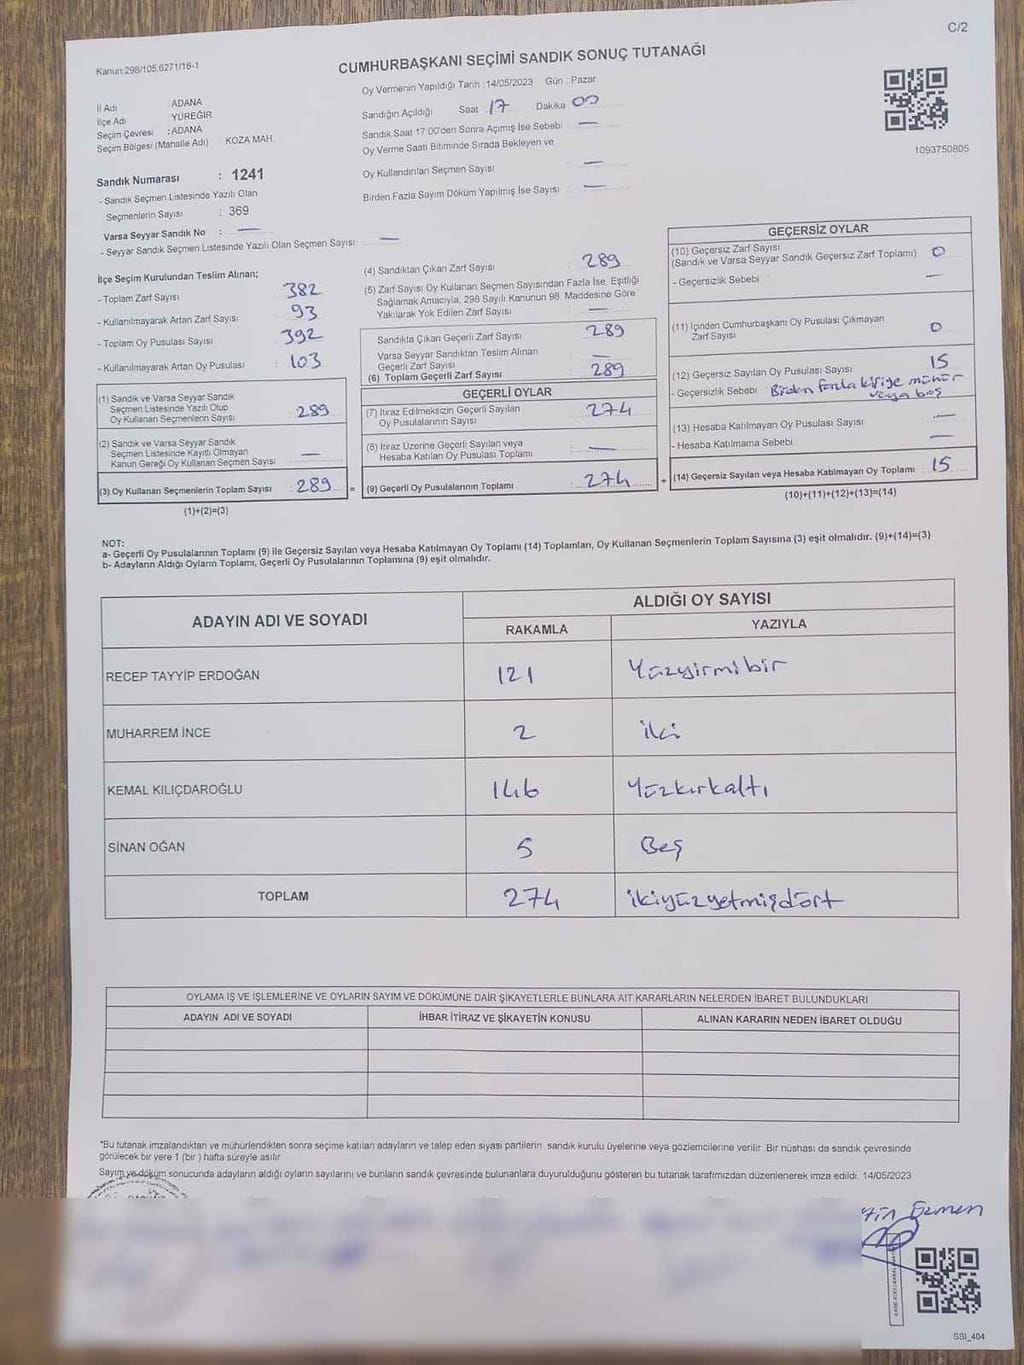 C/2
Kanun:298/105;6271/18-1
CUMHURBAŞKANI SEÇİMİ SANDIK SONUÇ TUTANAĞI
Oy Vermenin Yapıldığı Tarih : 14/05/2023 Gün : Pazar
İl Adı : ADANA
İlçe Adı : YÜREĞİR
Seçim Çevresi : ADANA
Seçim Bölgesi (Mahalle Adı) : KOZA MAH.
Sandığın Açıldığı Saat : 17 Dakika 00
Sandık Saat 17:00'den Sonra Açımış İse Sebebi : —
Oy Verme Saati Bitiminde Sırada Bekleyen ve
Oy Kullandırılan Seçmen Sayısı : —
Birden Fazla Sayım Döküm Yapılmış İse Sayısı : —
1093750805
Sandık Numarası : 1241
- Sandık Seçmen Listesinde Yazılı Olan
Seçmenlerin Sayısı : 369
Varsa Seyyar Sandık No : —
- Seyyar Sandık Seçmen Listesinde Yazılı Olan Seçmen Sayısı : —
İlçe Seçim Kurulundan Teslim Alınan;
- Toplam Zarf Sayısı : 382
- Kullanılmayarak Artan Zarf Sayısı : 93
- Toplam Oy Pusulası Sayısı : 392
- Kullanılmayarak Artan Oy Pusulası : 103
(1) Sandık ve Varsa Seyyar Sandık
Seçmen Listesinde Yazılı Olup
Oy Kullanan Seçmenlerin Sayısı : 289
(2) Sandık ve Varsa Seyyar Sandık
Seçmen Listesinde Kayıtlı Olmayan
Kanun Gereği Oy Kullanan Seçmen Sayısı : —
(3) Oy Kullanan Seçmenlerin Toplam Sayısı : 289 =
(1)+(2)=(3)
(4) Sandıktan Çıkan Zarf Sayısı : 289
(5) Zarf Sayısı Oy Kullanan Seçmen Sayısından Fazla İse, Eşitliği
Sağlamak Amacıyla, 298 Sayılı Kanunun 98. Maddesine Göre
Yakılarak Yok Edilen Zarf Sayısı : —
Sandıkta Çıkan Geçerli Zarf Sayısı : 289
Varsa Seyyar Sandıktan Teslim Alınan
Geçerli Zarf Sayısı : —
(6) Toplam Geçerli Zarf Sayısı : 289
GEÇERLİ OYLAR
(7) İtiraz Edilmeksizin Geçerli Sayılan
Oy Pusulalarının Sayısı : 274
(8) İtiraz Üzerine Geçerli Sayılan veya
Hesaba Katılan Oy Pusulası Toplamı : —
(9) Geçerli Oy Pusulalarının Toplamı : 274 +
GEÇERSİZ OYLAR
(10) Geçersiz Zarf Sayısı
(Sandık ve Varsa Seyyar Sandık Geçersiz Zarf Toplamı) : 0
- Geçersizlik Sebebi : —
(11) İçinden Cumhurbaşkanı Oy Pusulası Çıkmayan
Zarf Sayısı : 0
(12) Geçersiz Sayılan Oy Pusulası Sayısı : 15
- Geçersizlik Sebebi : Birden fazla kişiye mühür
veya boş
(13) Hesaba Katılmayan Oy Pusulası Sayısı : —
- Hesaba Katılmama Sebebi : —
(14) Geçersiz Sayılan veya Hesaba Katılmayan Oy Toplamı : 15
(10)+(11)+(12)+(13)=(14)
NOT:
a- Geçerli Oy Pusulalarının Toplamı (9) ile Geçersiz Sayılan veya Hesaba Katılmayan Oy Toplamı (14) Toplamları, Oy Kullanan Seçmenlerin Toplam Sayısına (3) eşit olmalıdır. (9)+(14)=(3)
b- Adayların Aldığı Oyların Toplamı, Geçerli Oy Pusulalarının Toplamına (9) eşit olmalıdır.
ADAYIN ADI VE SOYADI
ALDIĞI OY SAYISI
RAKAMLA YAZIYLA
RECEP TAYYİP ERDOĞAN 121 Yüzyirmibir
MUHARREM İNCE 2 iki
KEMAL KILIÇDAROĞLU 146 Yüzkırkaltı
SİNAN OĞAN 5 Beş
TOPLAM 274 ikiyüzyetmişdört
OYLAMA İŞ VE İŞLEMLERİNE VE OYLARIN SAYIM VE DÖKÜMÜNE DAİR ŞİKAYETLERLE BUNLARA AİT KARARLARIN NELERDEN İBARET BULUNDUKLARI
ADAYIN ADI VE SOYADI İHBAR İTİRAZ VE ŞİKAYETİN KONUSU ALINAN KARARIN NEDEN İBARET OLDUĞU
*Bu tutanak imzalandıktan ve mühürlendikten sonra seçime katılan adayların ve talep eden siyasi partilerin sandık kurulu üyelerine veya gözlemcilerine verilir. Bir nüshası da sandık çevresinde
görülecek bir yere 1 (bir) hafta süreyle asılır.
Sayım ve döküm sonucunda adayların aldığı oyların sayılarını ve bunların sandık çevresinde bulunanlara duyurulduğunu gösteren bu tutanak tarafımızdan düzenlenerek imza edildi. 14/05/2023
SSI_404